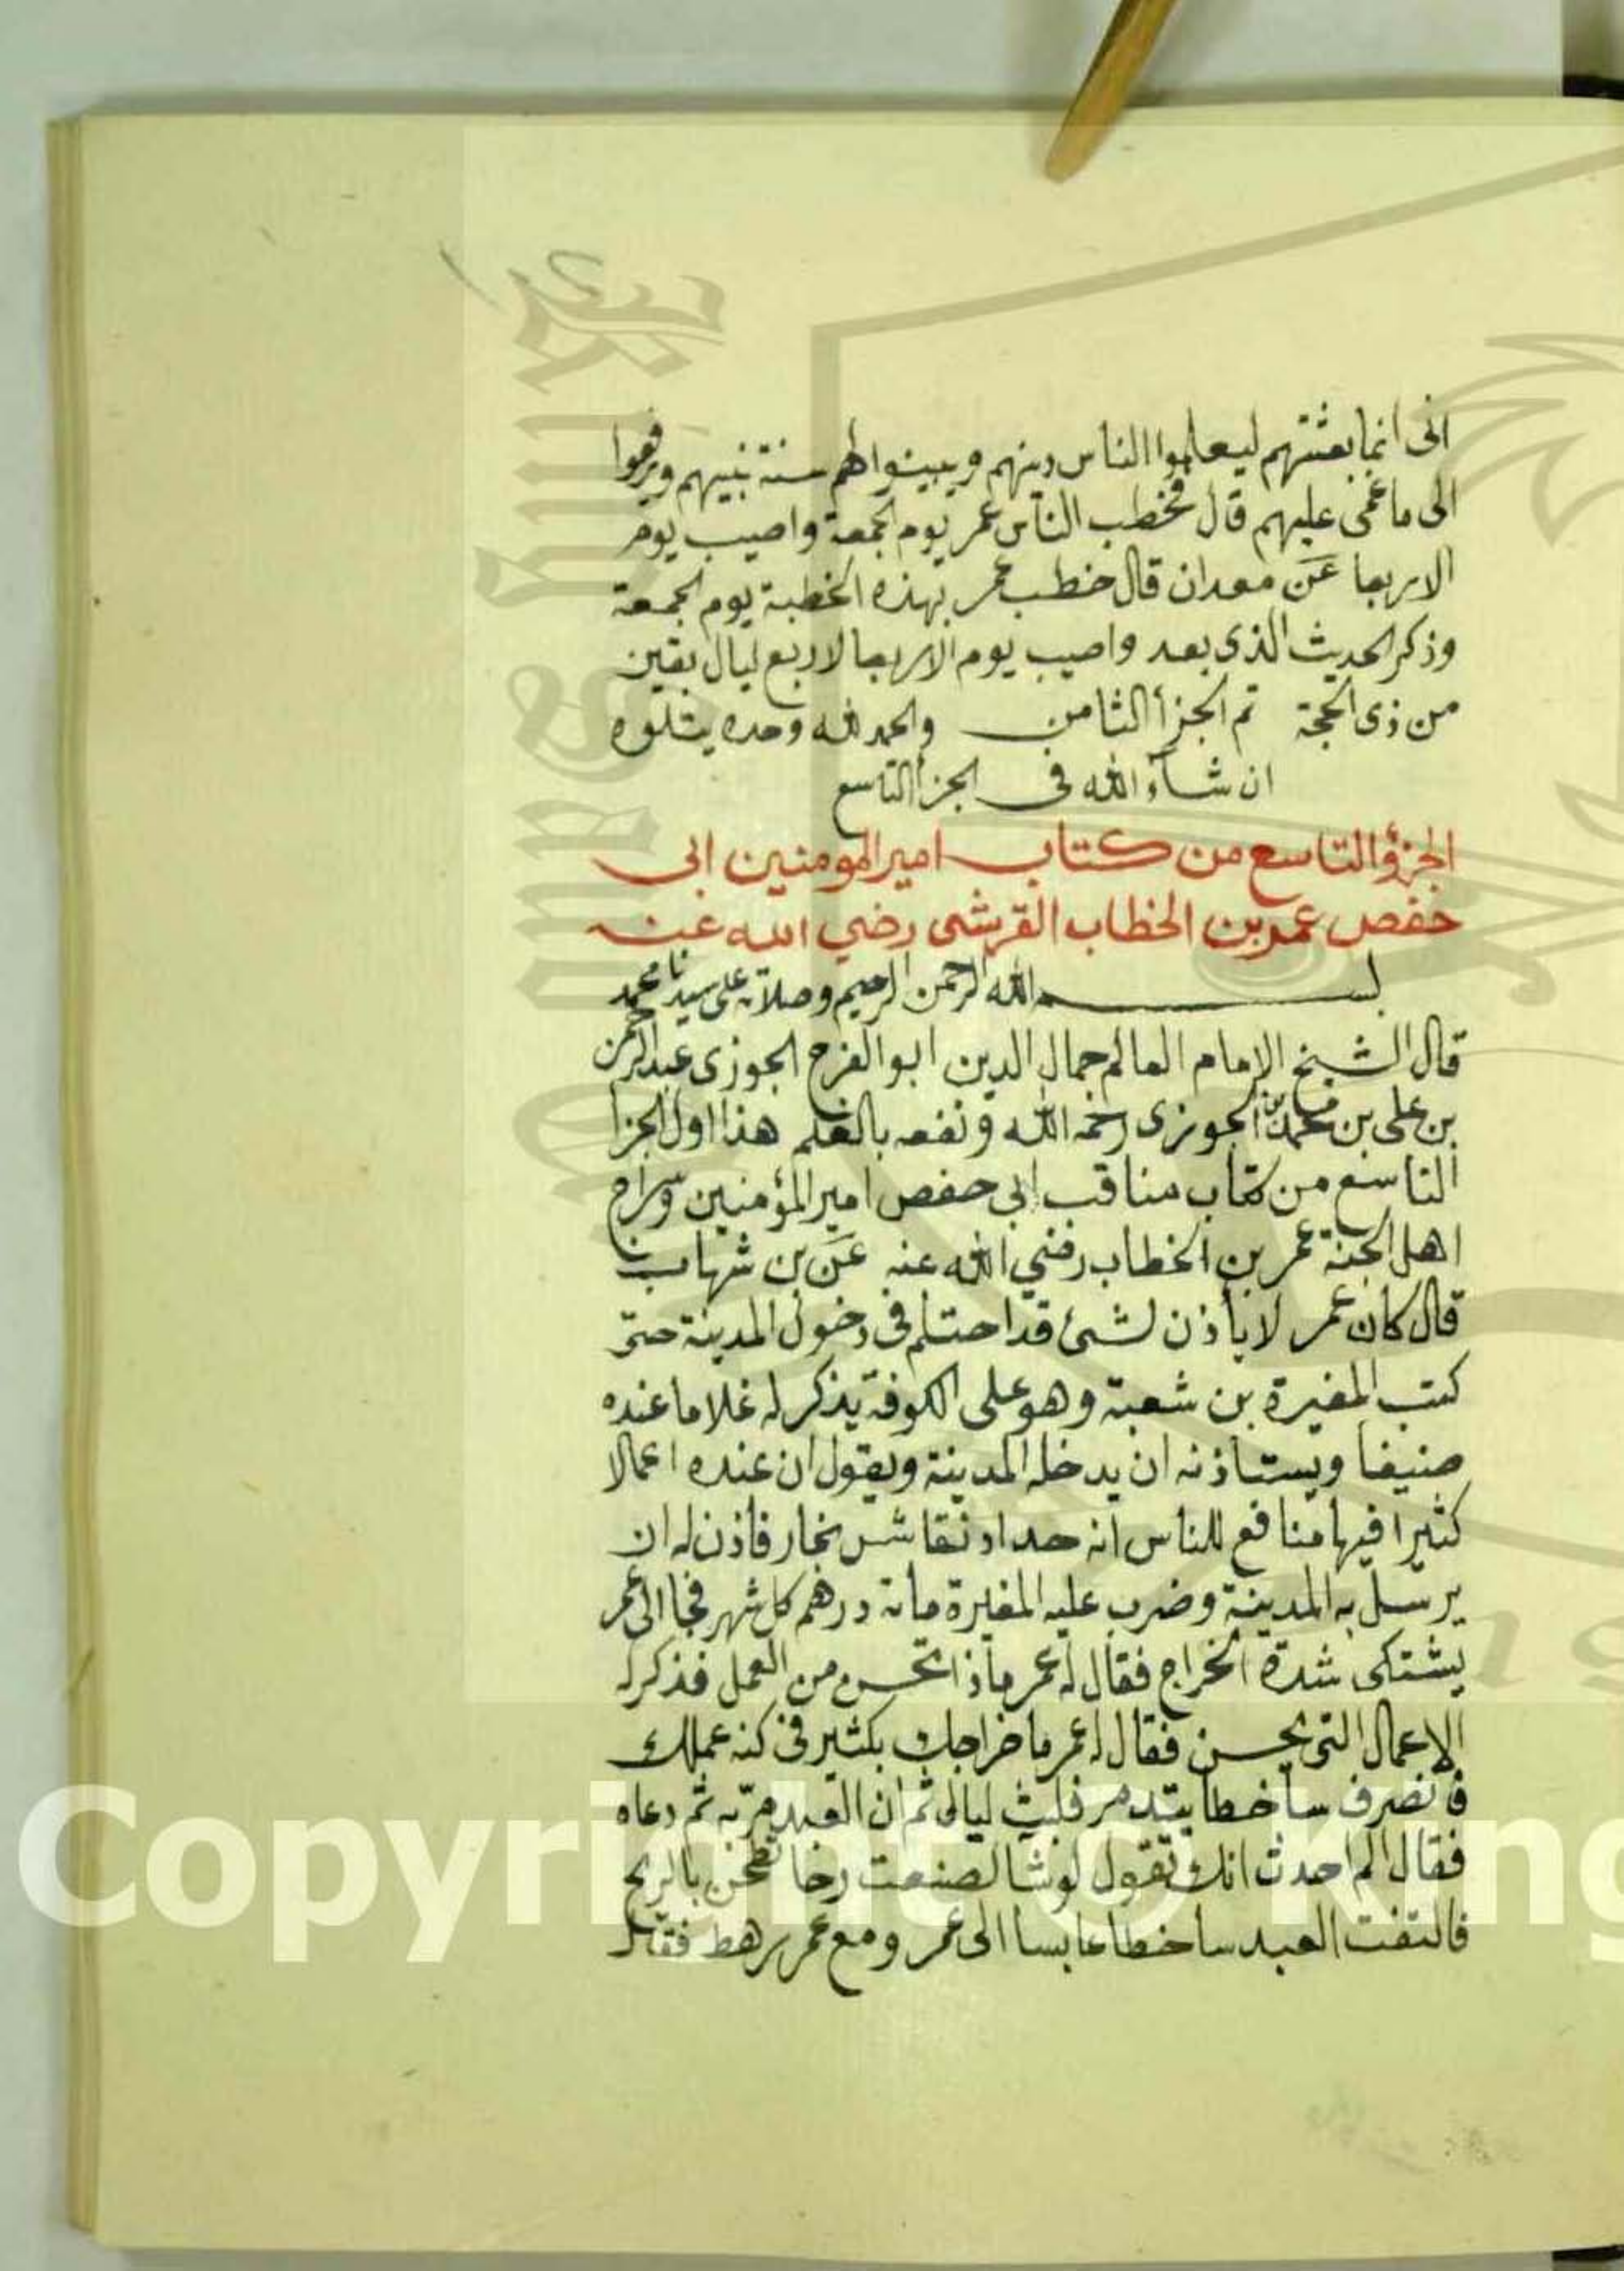 انى انما بعثتهم ليعلموا الناس دينهم ويبينوا لهم سنة نبيهم ويرفعوا
الى ما عمى عليهم قال فخطب الناس عمر يوم الجمعة واصيب يوم
الاربعا عن معدان قال خطب عمر بهذه الخطبة يوم الجمعة
وذكر الحديث الذى بعد واصيب يوم الاربعا لاربع ليال بقين
من ذى الحجة تم الجزأ الثامن والحمد لله وحده يتلوه
ان شآء الله فى الجزأ التاسع
الجزؤ التاسع من كتاب امير المومنين ابى
حفص عمر بن الخطاب القرشى رضي الله عنه
بسم الله الرحمن الرحيم وصلاته على سيدنا محمد
قال الشيخ الإمام العالم جمال الدين ابو الفرج الجوزى عبد الرحمن
بن على بن محمد بن الجوزى رحمه الله ونفعه بالعلم هذا اول الجزأ
التاسع من كتاب مناقب ابى حفص امير المؤمنين وسراج
اهل الجنة عمر بن الخطاب رضي الله عنه عن بن شهاب
قال كان عمر لا يأذن لشئ قد احتلم فى دخول المدينة حتى
كتب المغيرة بن شعبة وهو على الكوفة يذكر له غلاما عنده
صنيفا ويستاذنه ان يدخله المدينة ويقول ان عنده اعمالا
كثيرا فيها منافع للناس انه حداد نقاش نجار فاذن له ان
يرسل به المدينة وضرب عليه المغيرة مانة درهم كل شهر فجا الى عمر
يشتكى شدة الخراج فقال له عمر ماذا تحسن من العمل فذكر له
الاعمال التى يحسن فقال له عمر ما خراجك بكثير فى كنه عملك
فانصرف ساخطا يتدمر فلبث ليالى ثم ان العبد مر به ثم دعاه
فقال الم احدث انك تقول لو شا لصنعت رحا تطحن بالريح
فالتفت العبد ساخطا عابسا الى عمر ومع عمر رهط فقال
Copyright © King